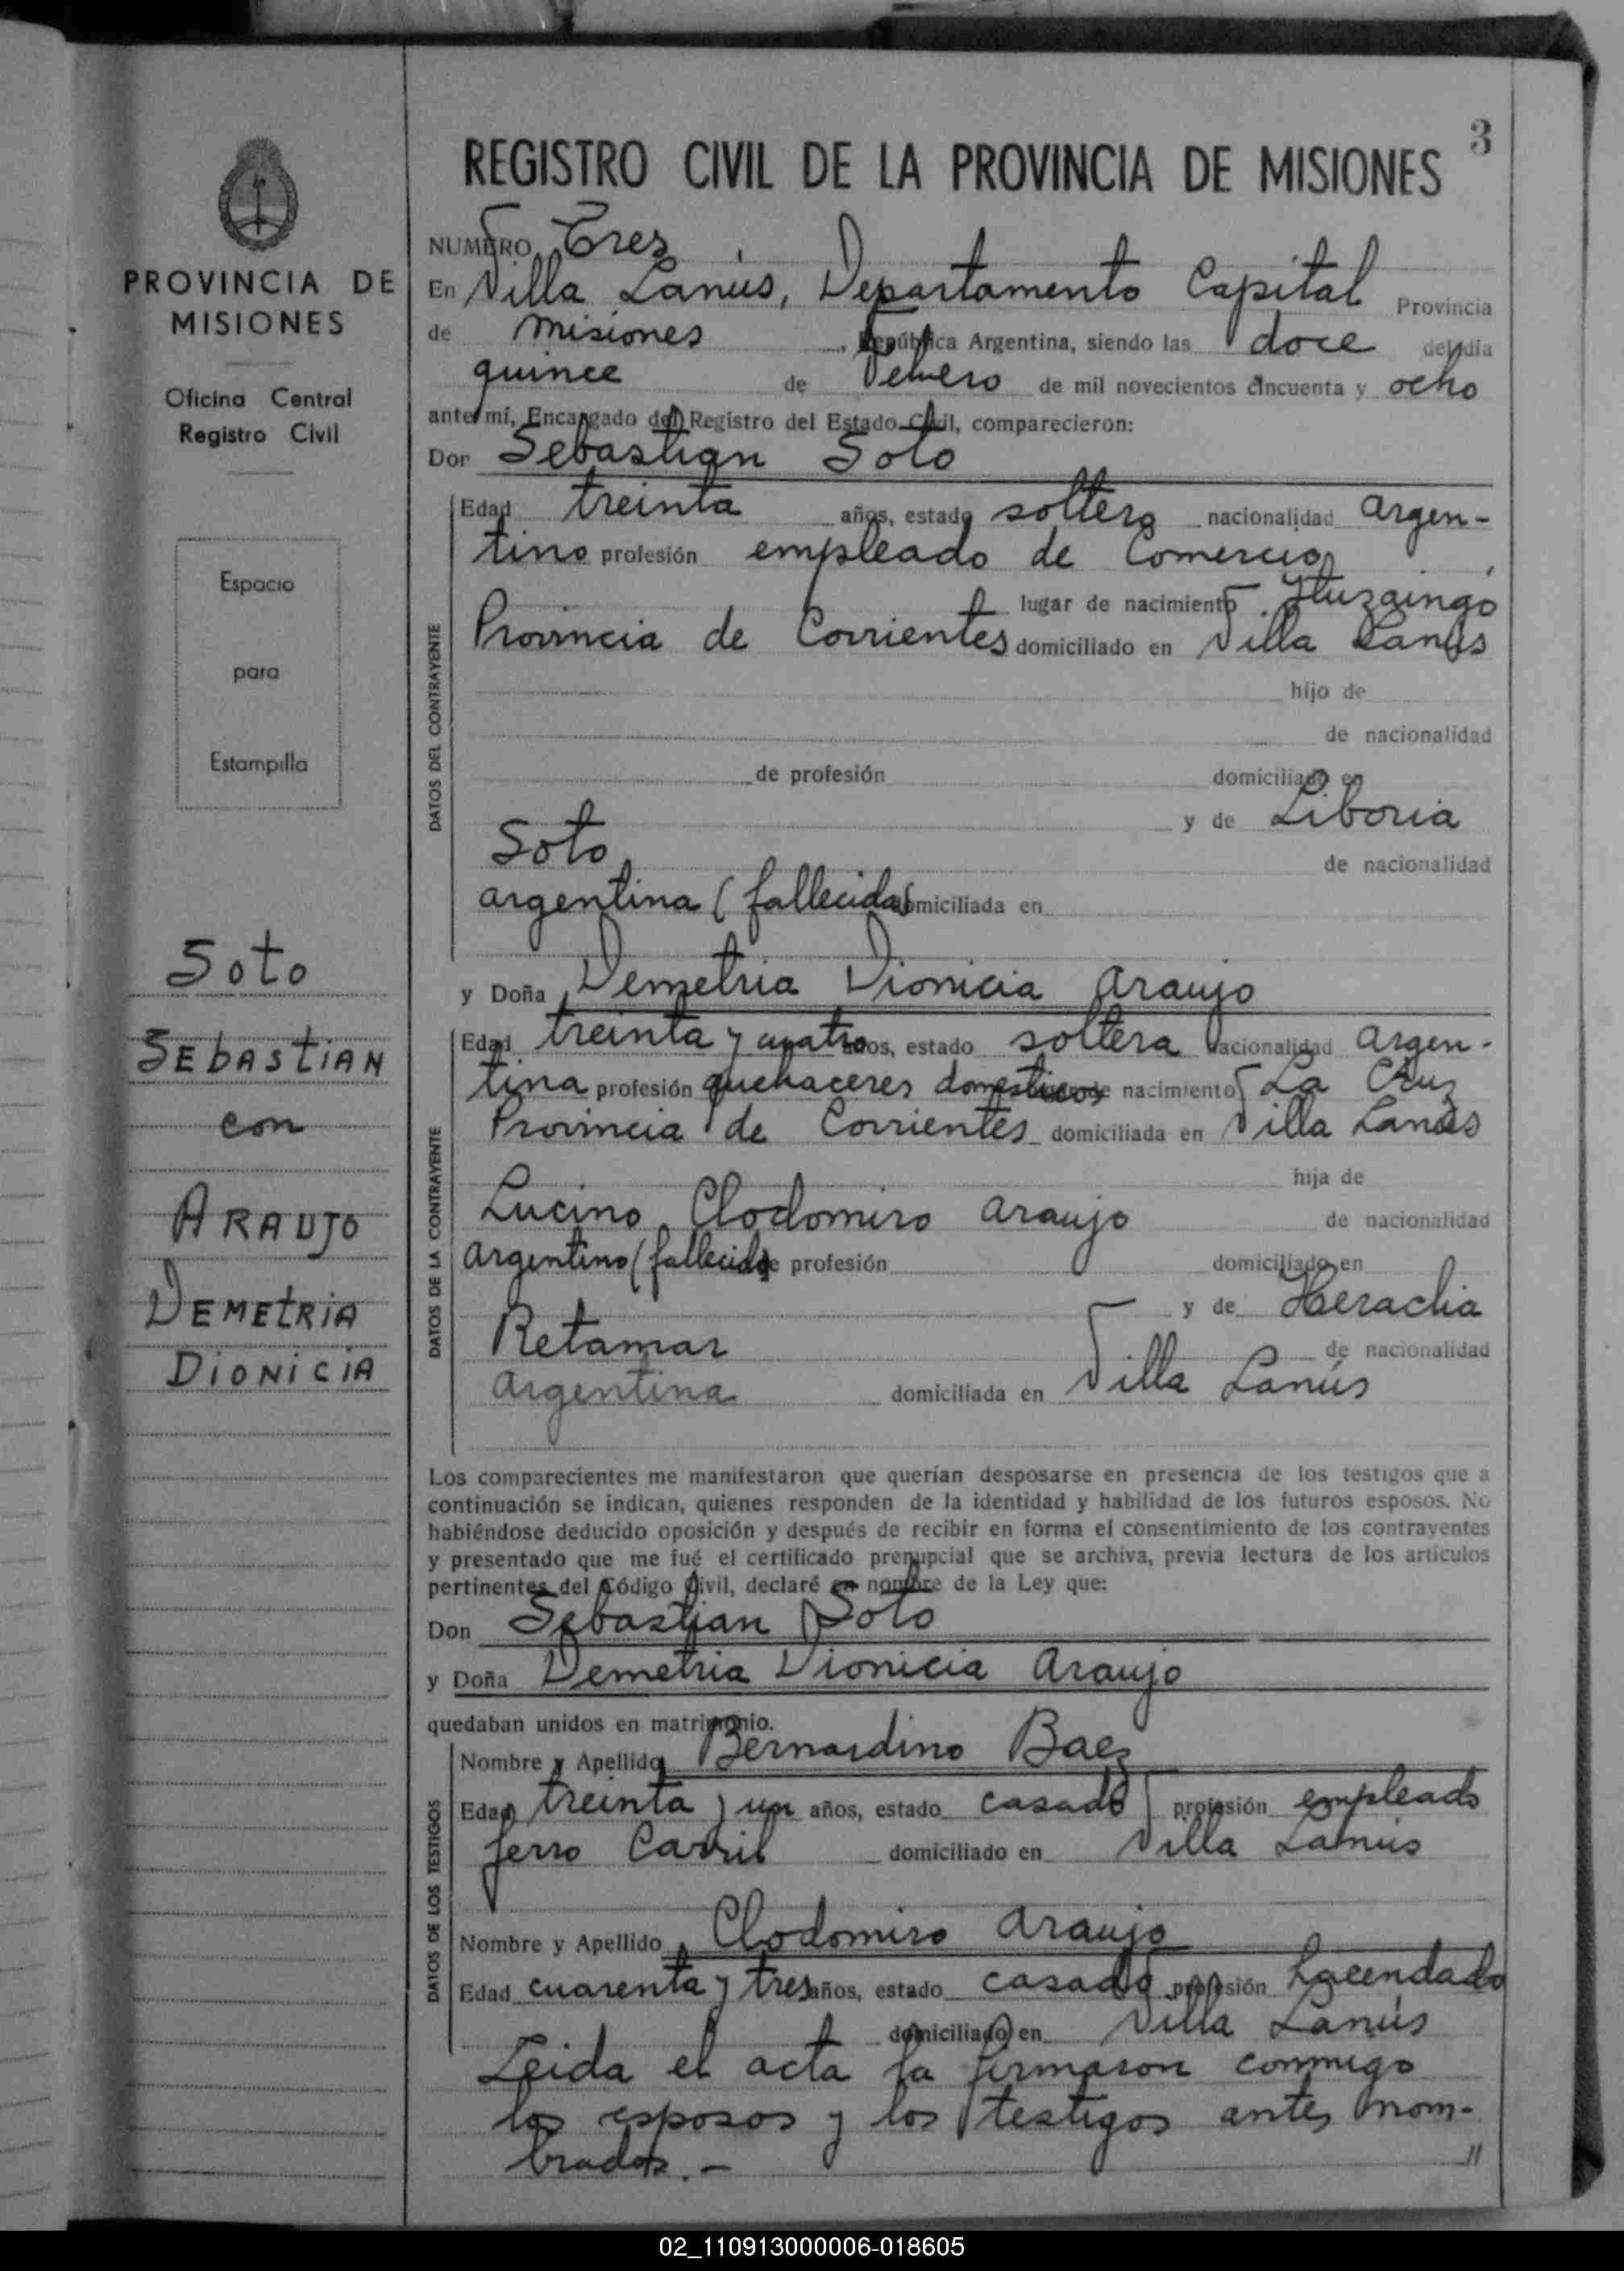 3
REGISTRO CIVIL DE LA PROVINCIA DE MISIONES
PROVINCIA DE
MISIONES
Oficina Central
Registro Civil
Espacio
para
Estampilla
Soto
SEbAStiAN
con
ARAUJO
DEMEtRiA
DiONiCiA
NUMERO Tres
En Villa Lanús, Departamento Capital Provincia
de Misiones, República Argentina, siendo las doce del día
quince de Febrero de mil novecientos cincuenta y ocho
ante mí, Encargado del Registro del Estado Civil, comparecieron:
Don Sebastian Soto
DATOS DEL CONTRAYENTE
Edad treinta años, estado soltero nacionalidad argen-
tino profesión empleado de Comercio
lugar de nacimiento Ituzaingo
Provincia de Corrientes domiciliado en Villa Lanús
hijo de
de nacionalidad
de profesión domiciliado en
y de Liboria
Soto de nacionalidad
argentina (fallecida) domiciliada en
y Doña Demetria Dionicia Araujo
DATOS DE LA CONTRAYENTE
Edad treinta y cuatro años, estado soltera nacionalidad argen-
tina profesión quehaceres domesticos lugar de nacimiento La Cruz
Provincia de Corrientes domiciliada en Villa Lanús
hija de
Lucino Clodomiro Araujo de nacionalidad
argentino (fallecido) de profesión domiciliado en
y de Heraclia
Retamar de nacionalidad
argentina domiciliada en Villa Lanús
Los comparecientes me manifestaron que querían desposarse en presencia de los testigos que a
continuación se indican, quienes responden de la identidad y habilidad de los futuros esposos. No
habiéndose deducido oposición y después de recibir en forma el consentimiento de los contrayentes
y presentado que me fué el certificado prenupcial que se archiva, previa lectura de los artículos
pertinentes del Código Civil, declaré en nombre de la Ley que:
Don Sebastian Soto
y Doña Demetria Dionicia Araujo
quedaban unidos en matrimonio.
DATOS DE LOS TESTIGOS
Nombre y Apellido Bernardino Baez
Edad treinta y un años, estado casado profesión empleado
ferro Carril domiciliado en Villa Lanús
Nombre y Apellido Clodomiro Araujo
Edad cuarenta y tres años, estado casado profesión hacendado
domiciliado en Villa Lanús
Leida el acta la firmaron conmigo
los esposos y los testigos antes nom-
brados.-
//
02_110913000006-018605